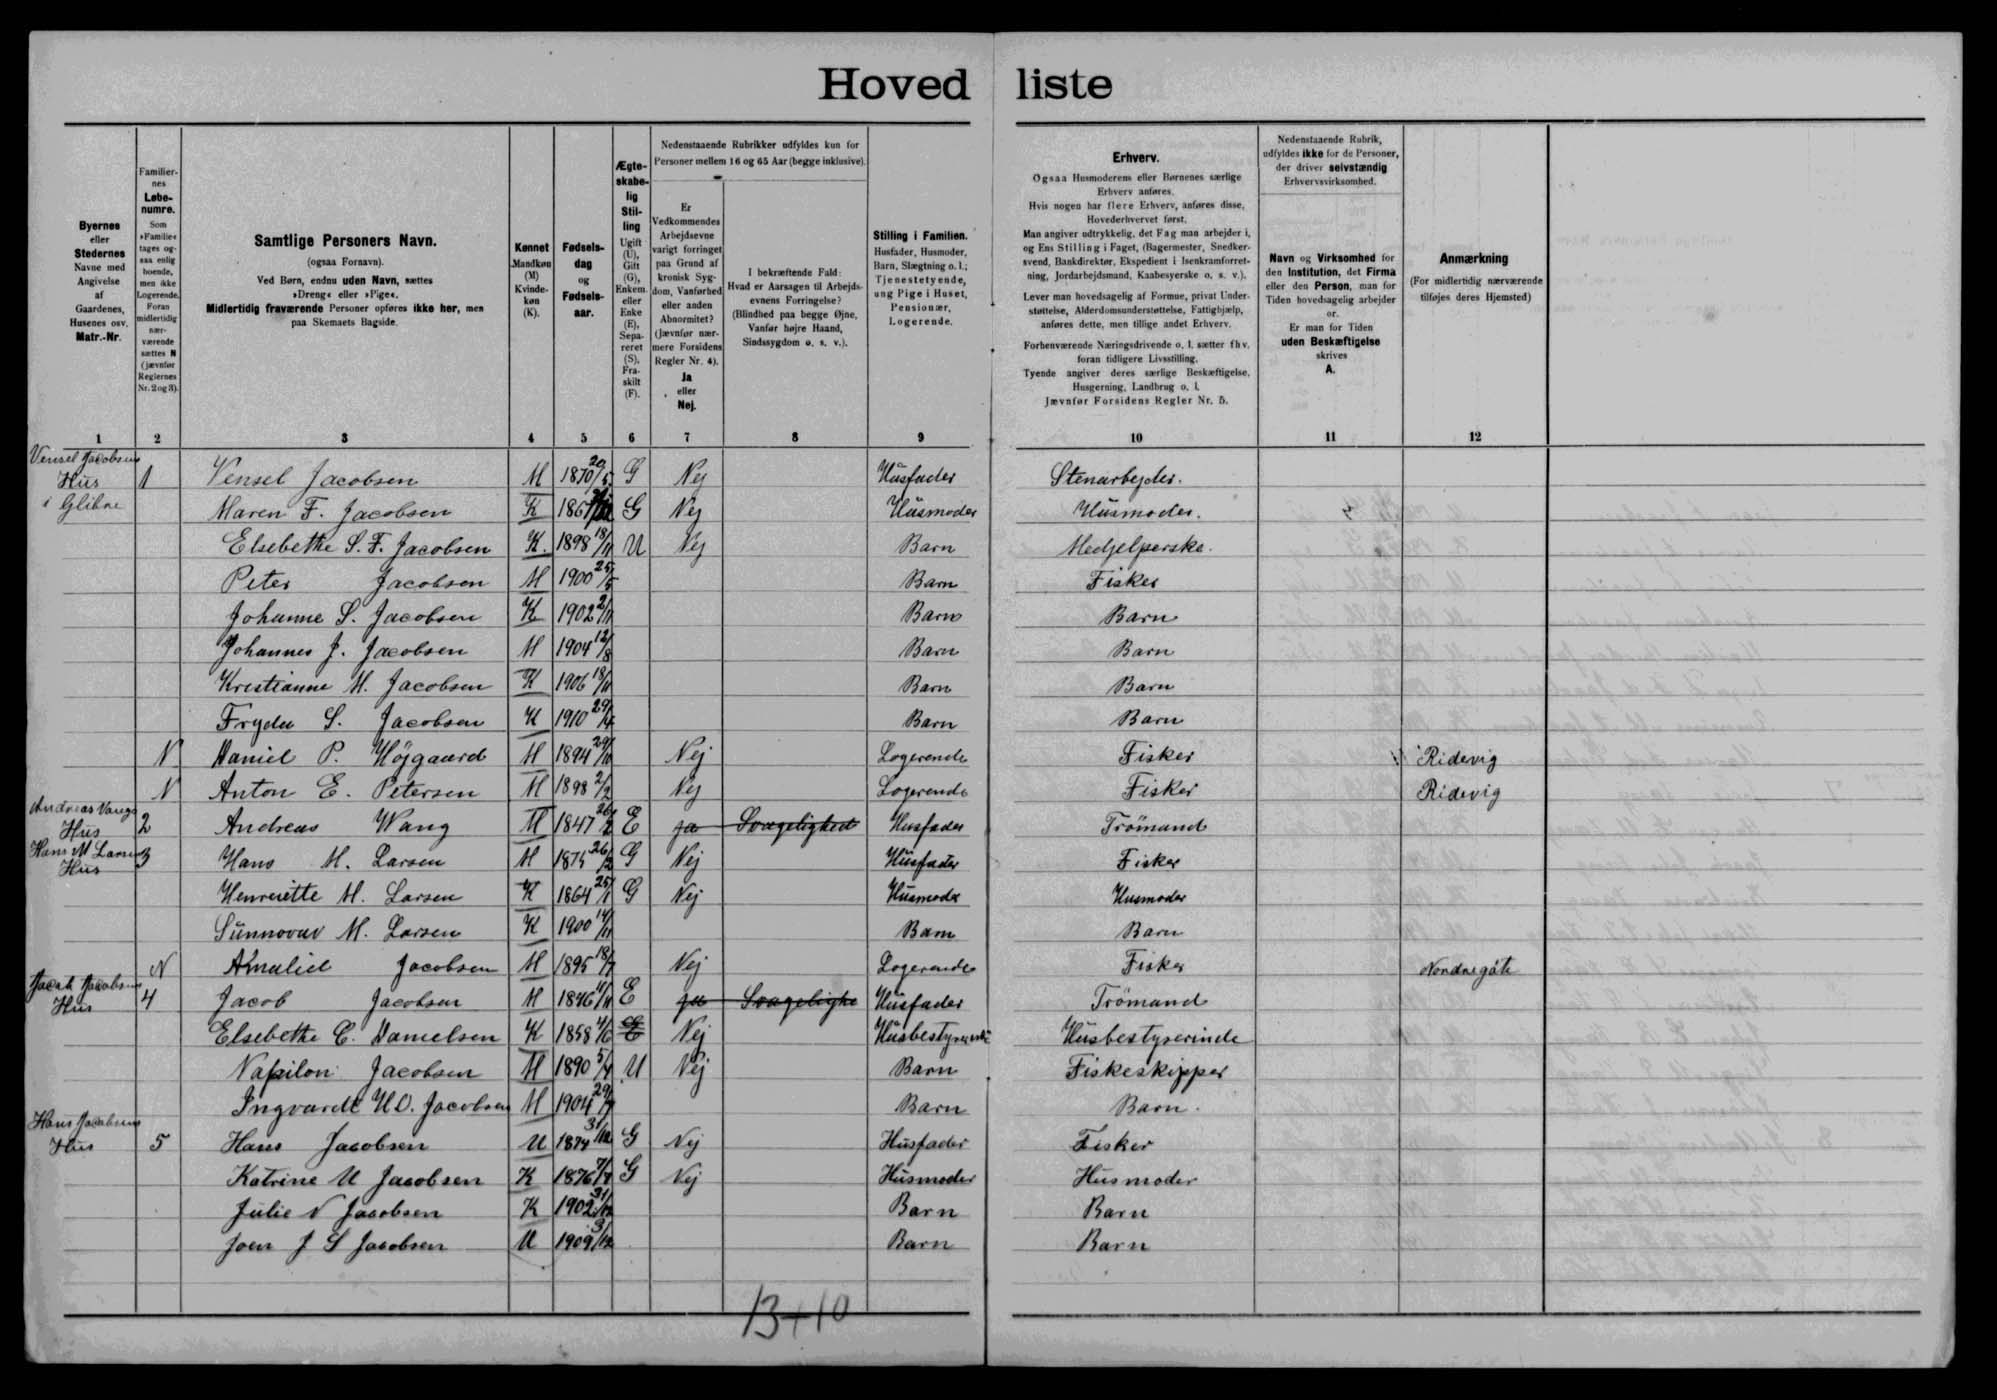 Hoved liste
Byernes
eller
Stedernes
Navne med
Angivelse
af
Gaardenes,
Husenes osv.
Matr.-Nr.
Familier-
nes
Løbe-
numre.
Som
»Familie«
tages og-
saa enlig
boende,
men ikke
Logerende.
Foran
midlertidig
nær-
værende
sættes N
(jævnfør
Reglernes
Nr. 2 og 3).
Samtlige Personers Navn.
(ogsaa Fornavn).
Ved Børn, endnu uden Navn, sættes
»Dreng« eller »Pige«.
Midlertidig fraværende Personer opføres ikke her, men
paa Skemaets Bagside.
Kønnet
Mandkøn
(M)
Kvinde-
køn
(K).
Fødsels-
dag
og
Fødsels-
aar.
Ægte-
skabe-
lig
Stil-
ling
Ugift
(U),
Gift
(G),
Enkem.
eller
Enke
(E),
Sepa-
reret
(S),
Fra-
skilt
(F).
Nedenstaaende Rubrikker udfyldes kun for
Personer mellem 16 og 65 Aar (begge inklusive).
Er
Vedkommendes
Arbejdsevne
varigt forringet
paa Grund af
kronisk Syg-
dom, Vanførhed
eller anden
Abnormitet?
(Jævnfør nær-
mere Forsidens
Regler Nr. 4).
Ja
eller
Nej.
I bekræftende Fald:
Hvad er Aarsagen til Arbejds-
evnens Forringelse?
(Blindhed paa begge Øjne,
Vanfør højre Haand,
Sindssygdom o. s. v.).
Stilling i Familien.
Husfader, Husmoder,
Barn, Slægtning o. l.;
Tjenestetyende,
ung Pige i Huset,
Pensionær,
Logerende.
Erhverv.
Ogsaa Husmoderens eller Børnenes særlige
Erhverv anføres.
Hvis nogen har flere Erhverv, anføres disse,
Hovederhvervet først.
Man angiver udtrykkelig, det Fag man arbejder i,
og Ens Stilling i Faget, (Bagermester, Snedker-
svend, Bankdirektør, Ekspedient i Isenkramforret-
ning, Jordarbejdsmand, Kaabesyerske o. s. v.).
Lever man hovedsagelig af Formue, privat Under-
støttelse, Alderdomsunderstøttelse, Fattighjælp,
anføres dette, men tillige andet Erhverv.
Forhenværende Næringsdrivende o. l. sætter fhv.
foran tidligere Livsstilling.
Tyende angiver deres særlige Beskæftigelse,
Husgerning, Landbrug o. l.
Jævnfør Forsidens Regler Nr. 5.
Nedenstaaende Rubrik,
udfyldes ikke for de Personer,
der driver selvstændig
Erhvervsvirksomhed.
Navn og Virksomhed for
den Institution, det Firma
eller den Person, man for
Tiden hovedsagelig arbejder
for.
Er man for Tiden
uden Beskæftigelse
skrives
A.
Anmærkning
(For midlertidig nærværende
tilføjes deres Hjemsted)
1 2 3 4 5 6 7 8 9 10 11 12
Vensel Jacobsens
Hus 1 Vensel Jacobsen M 1870 20/5 G Nej Husfader Stenarbejder.
i Glibre Maren F. Jacobsen K G Nej Husmoder Husmoder.
Elsebethe S. F. Jacobsen K. 1898 18/11 U Nej Barn Medjelperske.
Peter Jacobsen M 1900 25/5 Barn Fisker
Johanne S. Jacobsen K 1902 2/11 Barn Barn
Johannes J. Jacobsen M 1904 12/8 Barn Barn
Kristianne M. Jacobsen K 1906 18/11 Barn Barn
Fryda S. Jacobsen K 1910 29/4 Barn Barn
N Daniel P. Höjgaard M 1894 29/11 Nej Logerende Fisker Ridevig
N Anton E. Petersen M 1898 2/2 Nej Logerende Fisker Ridevig
Andreas Vangs
Hus 2 Andreas Wang M 1847 26/2 E ja Svagelighed Husfader Trömand
Hans M Larsens
Hus 3 Hans M. Larsen M 1875 26/2 G Nej Husfader Fisker
Henreiette M. Larsen K 1864 25/1 G Nej Husmoder Husmoder
Sunnovav M. Larsen K 1900 14/11 Barn Barn
N Amaliel Jacobsen M 1895 18/7 Nej Logerende Fisker Nordregöte
Jacob Jacobsens
Hus 4 Jacob Jacobsen M 1846 11/11 E ja Svagelighe Husfader Trömand
Elsebethe C. Danielsen K 1858 4/6 Nej Husbestyrerinde Husbestyrerinde
Napilon Jacobsen M 1890 5/4 U Nej Barn Fiskeskipper
Ingvardt H. D. Jacobsen M 1904 29/7 Barn Barn.
Hans Jacobsens
Hus 5 Hans Jacobsen M 1874 31/12 G Nej Husfader Fisker
Katrine M Jacobsen K 1876 7/7 G Nej Husmoder Husmoder
Julie N Jacobsen K 1902 31/12 Barn Barn
Joen J S Jacobsen M 1909 3/12 Barn Barn
13+10